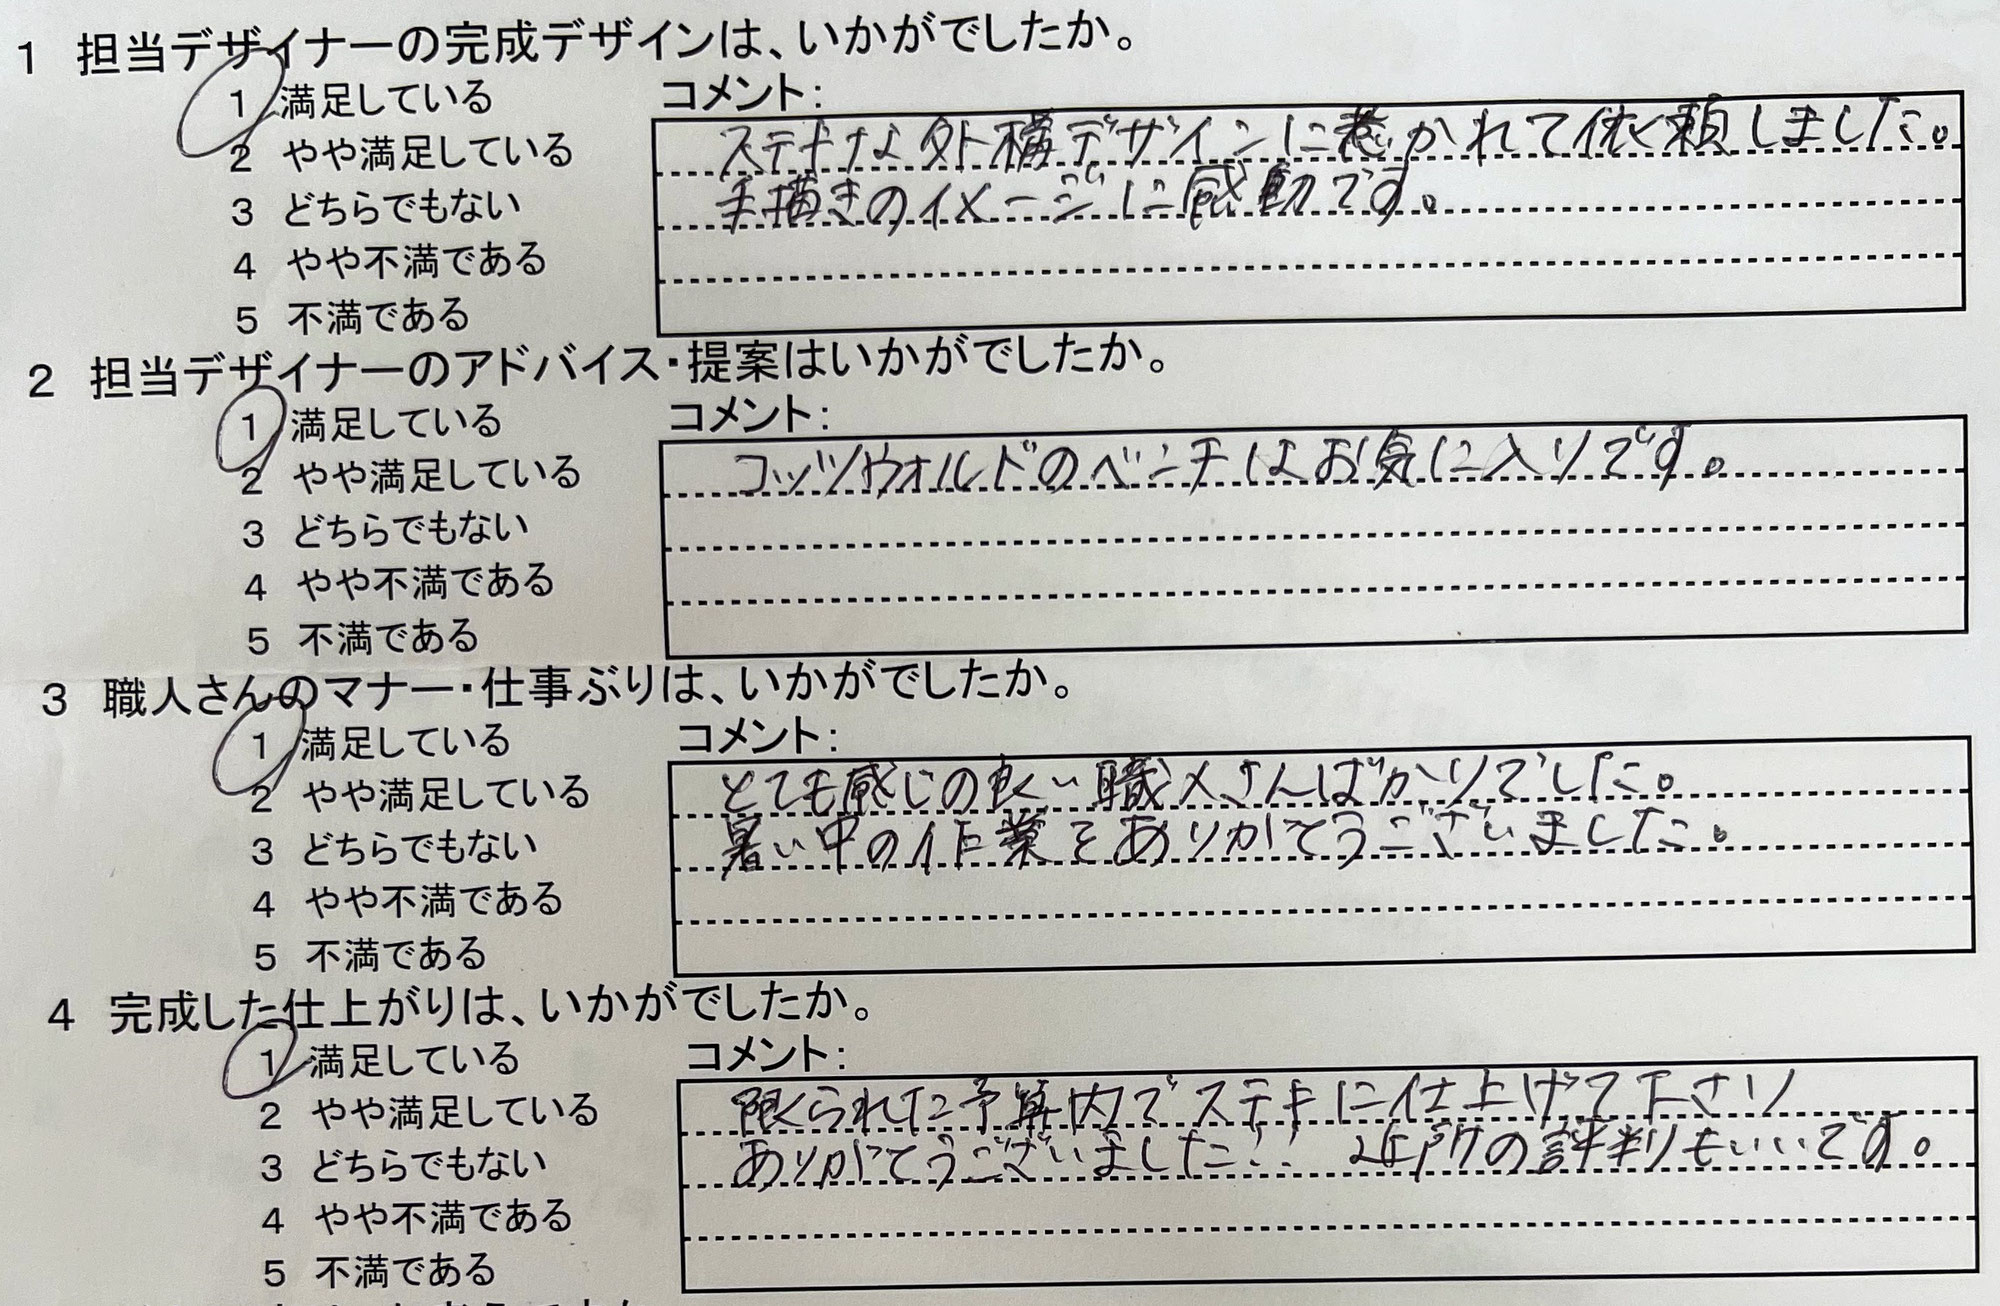 1 担当デザイナーの完成デザインは、いかがでしたか。
1 満足している
2 やや満足している
3 どちらでもない
4 やや不満である
5 不満である
コメント：
ステキな外構デザインに惹かれて依頼しました。
手描きのイメージに感動です。
2 担当デザイナーのアドバイス・提案はいかがでしたか。
1 満足している
2 やや満足している
3 どちらでもない
4 やや不満である
5 不満である
コメント：
コッツウォルドのベンチはお気に入りです。
3 職人さんのマナー・仕事ぶりは、いかがでしたか。
1 満足している
2 やや満足している
3 どちらでもない
4 やや不満である
5 不満である
コメント：
とても感じの良い職人さんばかりでした。
暑い中の作業をありがとうございました。
4 完成した仕上がりは、いかがでしたか。
1 満足している
2 やや満足している
3 どちらでもない
4 やや不満である
5 不満である
コメント：
限られた予算内でステキに仕上げて下さり
ありがとうございました!! 近所の評判もいいです。